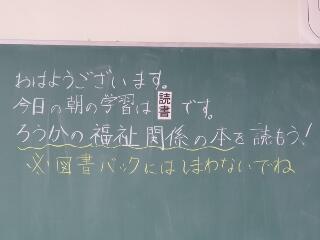 おはようございます。
今日の朝の学習は 読書 です。
ろうかの福祉関係の本を読もう!
※図書バックにはしまわないでね